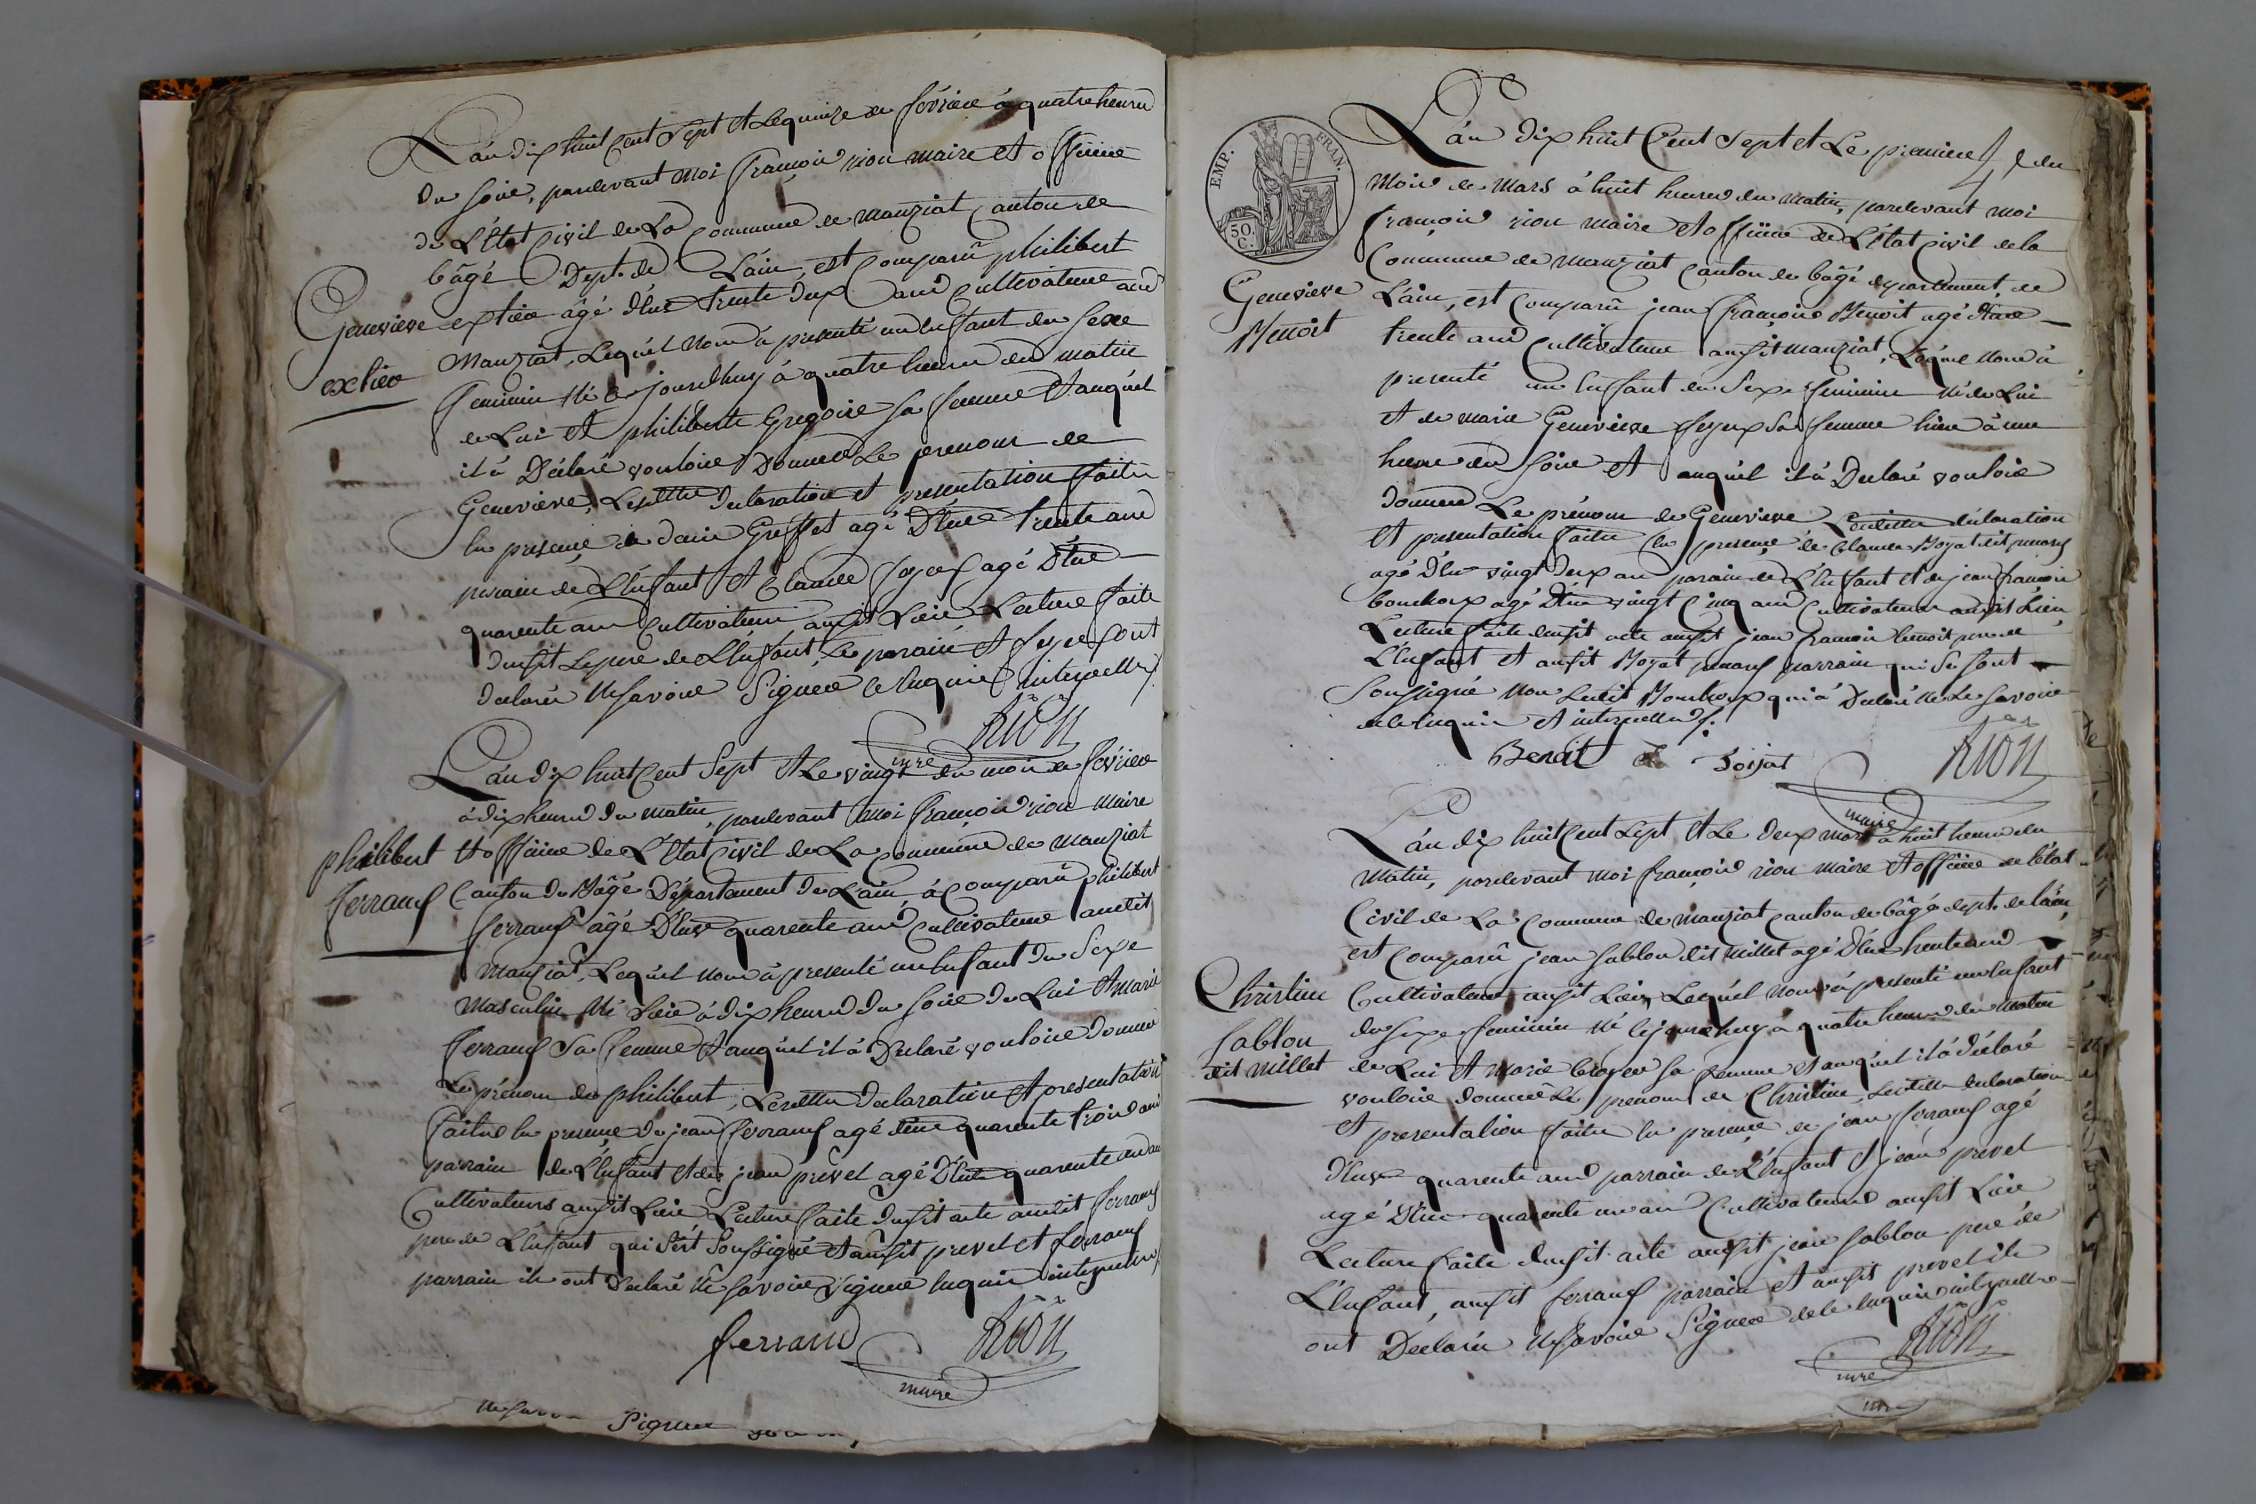 L'án dix huit Cent Sept et Le quinze de févriere á quatre heures
du soire, pardevant moi françois rion maire et officiere
de L'état Civil de La Commune de manziat Canton de
bâgé Dept. de L'ain, est Comparû philibert
Genevieve extier âgé d'Environ trente deux ans Cultivateure audit
exlier
manziat, Lequel nous á presenté un Enfant du sexe
feminin Né ce jourdhuy á quatre heures du matin
de Lui et philiberte Gregoire sa femme et auquél
il á Déclaré vouloire Donnere Le prenom de
Genevieve, Lesdittes declaration et presentation faites
En presençe de Greffet agé D'Env trente ans
parain de L'Enfant et Claude foyer agé D'Env
quarente ans Cultivateurs audit Lieu Lecture faite
dudit Le pere de L'Enfant, Le parain et foyer ont
declarés Ne savoire Signere de Enquis interpellés
Rion
mire
L'án dix huit Cent Sept et Le vingt du mois de février
á dix heures du matin, pardevant moi françois rion maire
et officiere de L'Etat Civil de La Commune de manziat
philibert
ferrand
Canton de Bâgé Département de L'ain, á Comparû philibert
ferrand âgé D'Env quarente ans Cultivateure audit
manziat, Lequel nous á presenté un Enfant du Sexe
masculin Né hier á dix heures du soire de Lui et marie
ferrand sa femme et auquél il á Declaré vouloire donner
Le prénom de philibert, Lesdittes declaration et presentation
faites En presençe de jean ferrand agé d'Env quarente trois ans
parrain de L'Enfant et de jean prevel agé D'Env quarente ans
Cultivateurs audit Lieu Lecture faite dudit acte audit ferrand
pere de L'Enfant qui s'ést Soussigné et audit prevel et ferrand
parrain ils ont declaré Ne savoire Signere Enquis interpellés
ferrand
Rion
maire
Signere
EMP. FRAN.
50.
C.
L'án dix huit Cent Sept et Le premiere du
mois de mars á huit heures du matin, pardevant moi
françois rion maire et officiere de L'état Civil de la
Commune de manziat Canton de bâgé departement de
Genevieve
Benoit
L'ain, est Comparû jean françois Benoit agé d'Env
trente ans Cultivateure audit manziat, Lequel nous á
presenté un Enfant du Sexe feminin Né de Lui
et de marie Genevieve feyeux sa femme hier á une
heure du soire et auquél il á Declaré vouloire
donnere Le prénom de Genevieve Lesdittes déclaration
et presentation faites En presençe de Claude Boyat dit
agé d'Env vingt deux ans parain de L'Enfant et de jean françois
bouchoux agé D'Env vingt Cinq ans Cultivateurs audit Lieu
Lecture faite dudit acte audit jean françois benoit pere de
L'Enfant et audit Boyat parrain qui Se sont
Soussigné non Ledit Bouchoux qui á Declaré Ne Le savoire
de ce Enquis et interpellés.
Benoit
Boijat
Rion
maire
L'án dix huit Cent Sept et Le deux mars á huit heures du
matin, pardevant moi françois rion maire et officiere de l'état
Civil de La Commune de manziat Canton de bâgé dept. de L'ain,
est Comparû jean Sablon dit millet agé D'Env trente ans
Christine
Sablon
dit millet
Cultivateure audit Lieu, Lequél nous á presenté un Enfant
du Sexe feminin Né cejourdhuy á quatre heures du matin
de Lui et marie broyer sa femme et auquél il á déclaré
vouloire donnere Le prenom de Christine, Lesdittes declaration
et presentation faites En presençe de jean ferrand agé
d'Env quarente ans parrain de L'Enfant et jean prevel
agé D'Env quarente un ans Cultivateurs audit Lieu
Lecture faite dudit acte audit jean Sablon pere de
L'Enfant, audit ferrand parrain et audit prevel ils
ont Declarés Ne savoire Signere de ce Enquis interpellés
Rion
mire